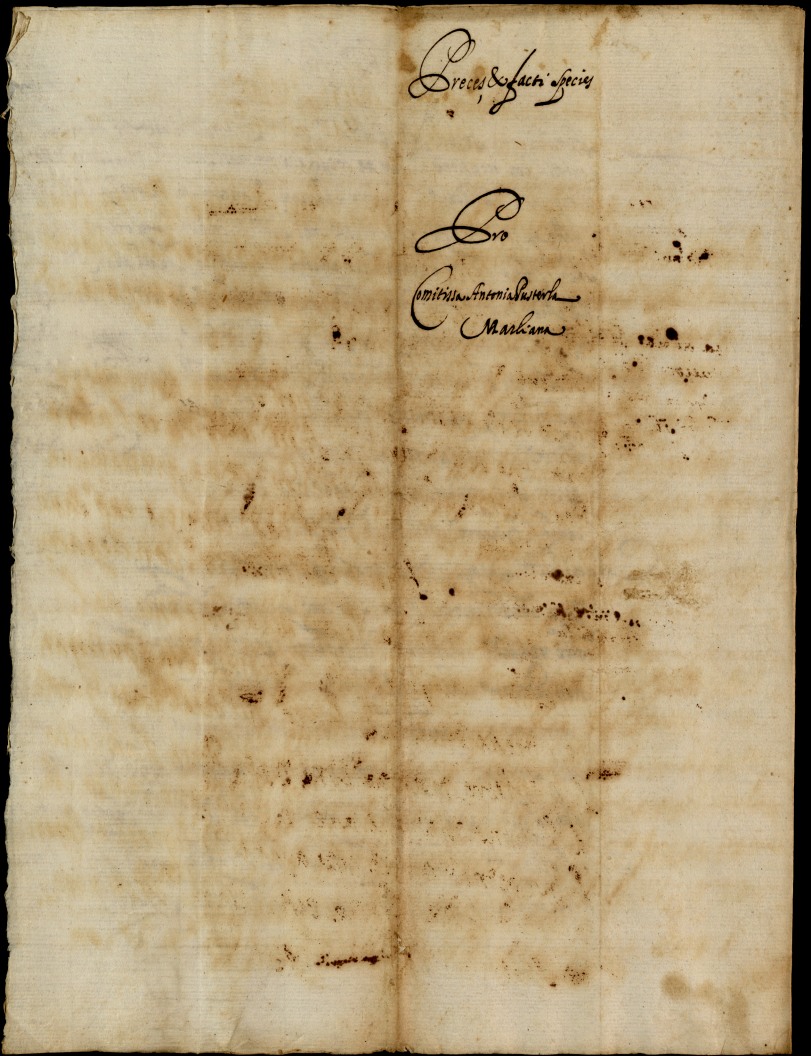 Preces, & facti species
Pro
Comitissa Antonia Pusterla
Marliana